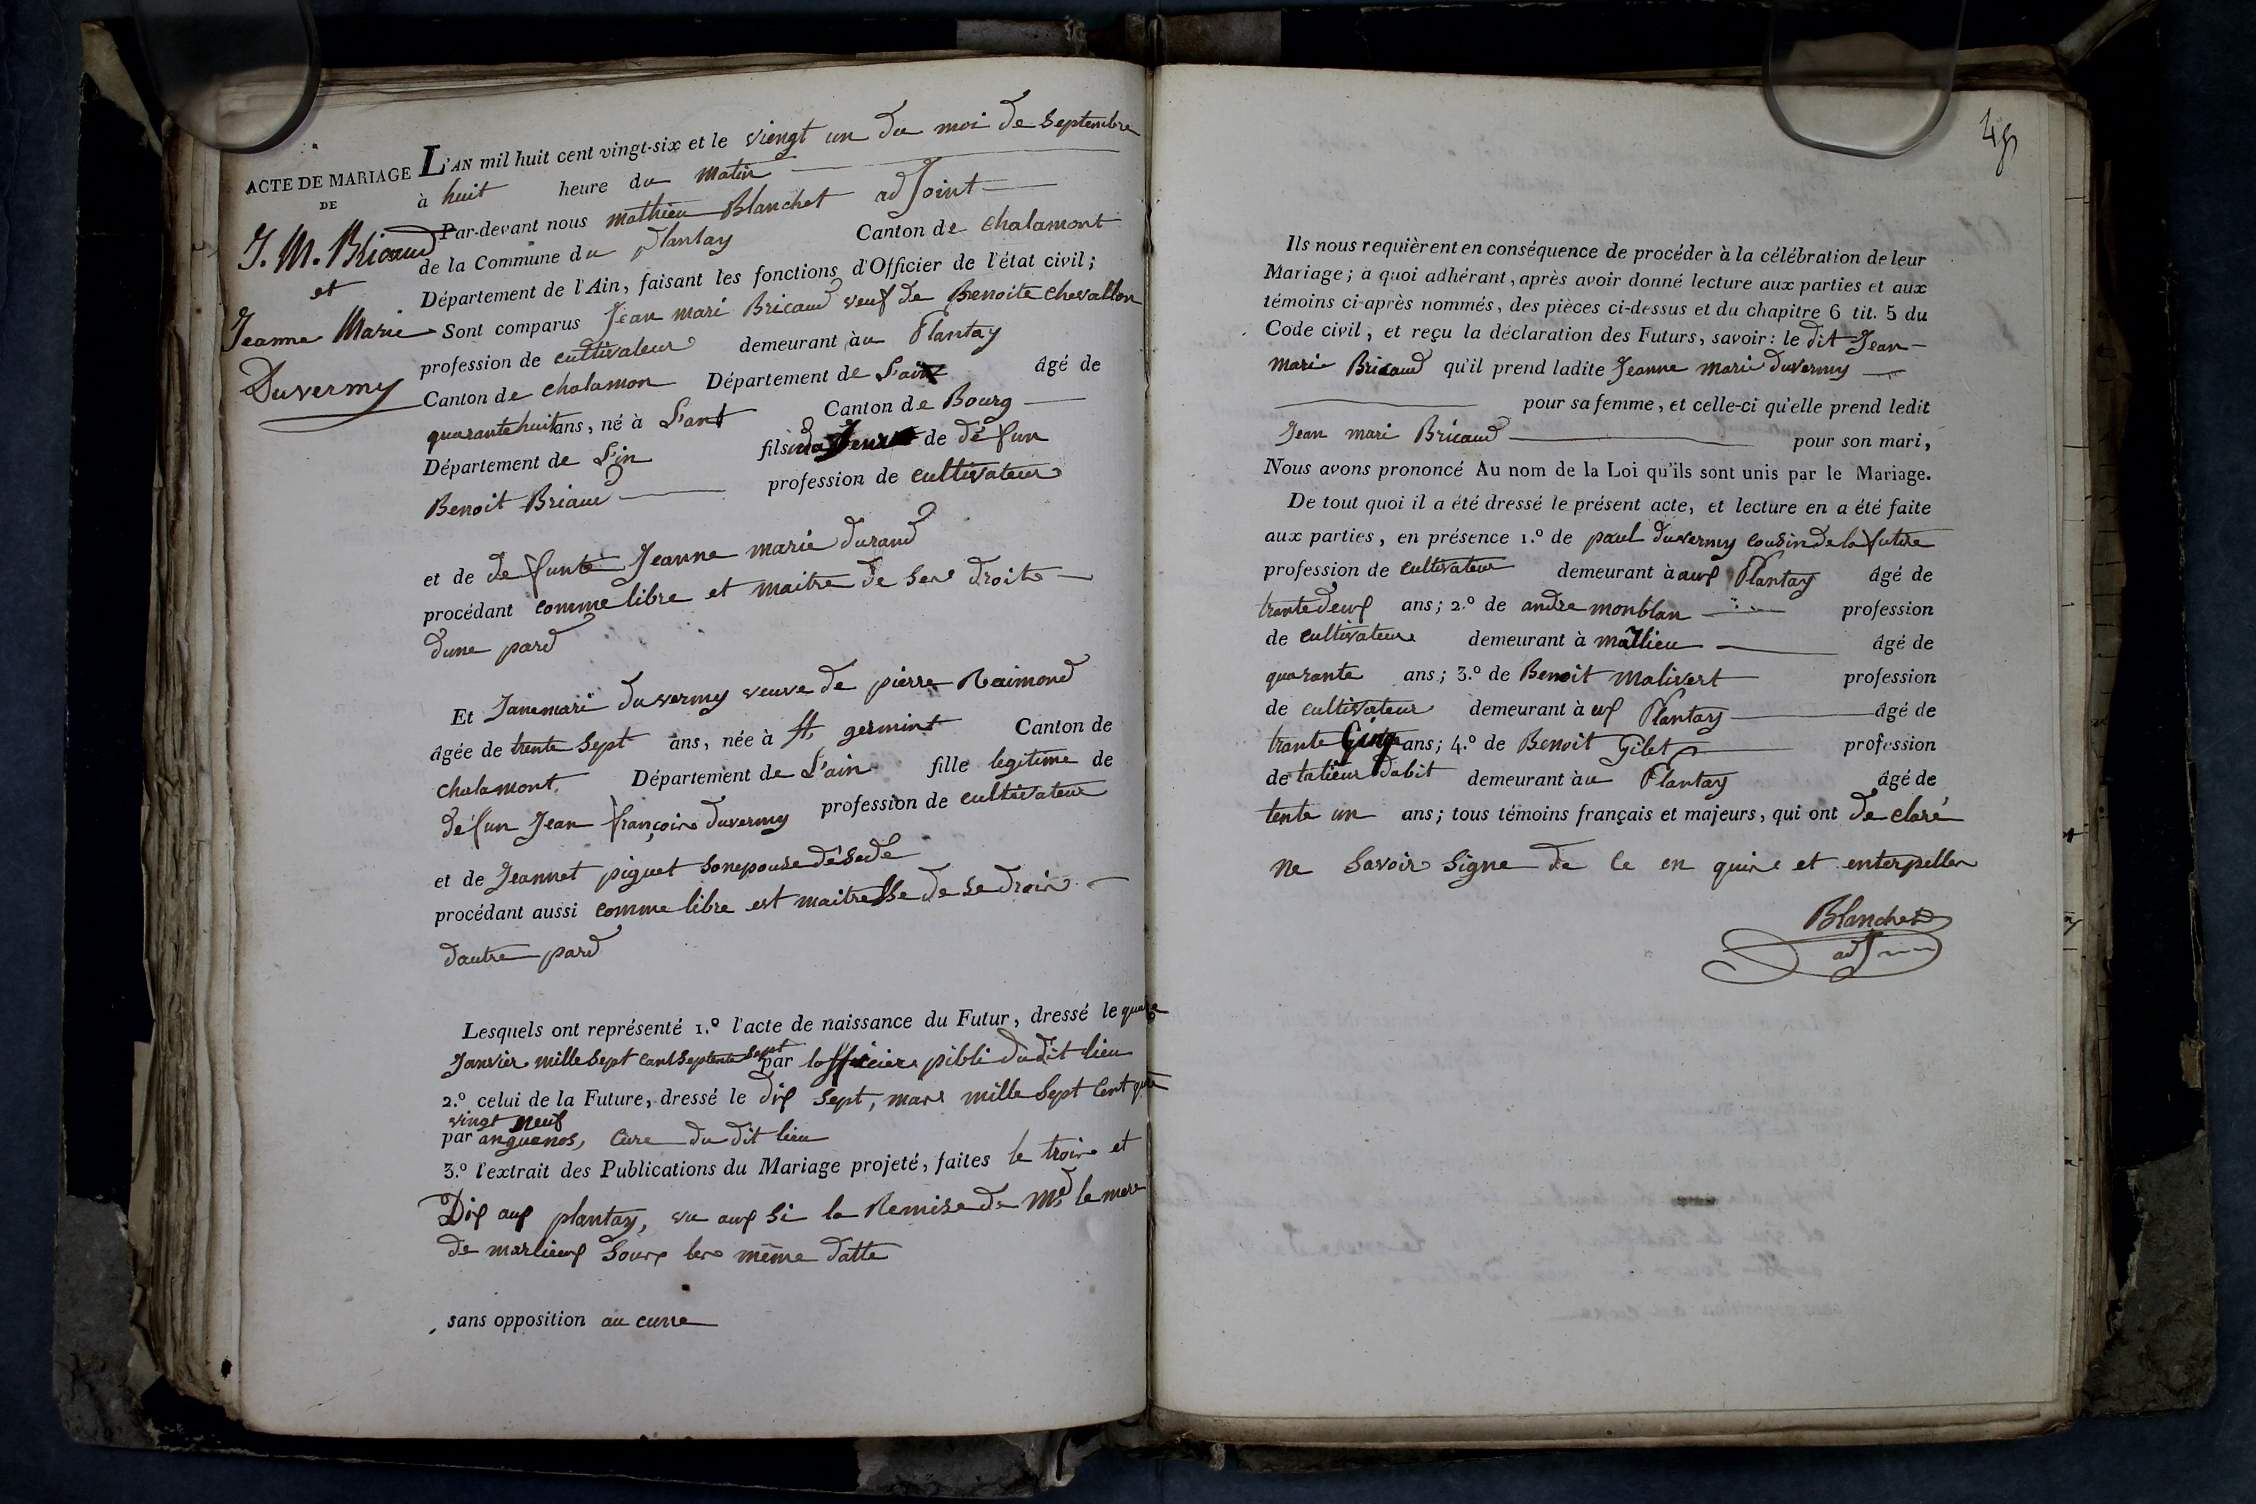 ACTE DE MARIAGE
DE
J. M. Bricaud
et
Jeanne Marie
Duvermy
L'AN mil huit cent vingt-six et le viengt un du moi de Septembre
à huit heure du matin
Par-devant nous mathieu Blanchet adjoint
de la Commune du plantay Canton de chalamont
Département de l'Ain, faisant les fonctions d'Officier de l'état civil;
Sont comparus Jean mari Bricaud veuf de Benoite chevallon
profession de cultivateur demeurant au Plantay
Canton de chalamon Département de L'ain âgé de
quarantehuit ans, né à L'ant Canton de Bourg
Département de L'in fils de défun
Benoit Briaux profession de cultivateur
et de defunte Jeanne marie durand
procédant comme libre et maitre de Ses droits
dune pard
Et Janemari duvermy veuve de pierre Raimond
âgée de trente Sept ans, née à st germint Canton de
chalamont, Département de L'ain fille legitime de
défun Jean françois duvermy profession de cultivateur
et de Jeannet piguet Sonepouse déSede
procédant aussi comme libre est maitresse de Se drois
dautre pard
Lesquels ont représenté 1.º l'acte de naissance du Futur, dressé le
Janvier mille Sept cant Septente Sept par lofficier pibli dudit lieu
2.º celui de la Future, dressé le dix Sept, mars mille Sept Cent
vingt neuf
par anguenos, Cure du dit lieu
3.º l'extrait des Publications du Mariage projeté, faites le trois et
Dix aux plantay, vu auxsi la Remise de Mr le mere
de marlieux Sours les même datte
sans opposition au cune
48
Ils nous requièrent en conséquence de procéder à la célébration de leur
Mariage; à quoi adhérant, après avoir donné lecture aux parties et aux
témoins ci-après nommés, des pièces ci-dessus et du chapitre 6 tit. 5 du
Code civil, et reçu la déclaration des Futurs, savoir: le dit Jean
marie Bricaud qu'il prend ladite Jeanne marie duvermy
pour sa femme, et celle-ci qu'elle prend ledit
Jean mari Bricaud pour son mari,
Nous avons prononcé Au nom de la Loi qu'ils sont unis par le Mariage.
De tout quoi il a été dressé le présent acte, et lecture en a été faite
aux parties, en présence 1.º de paul duvermy cousin de la future
profession de cultivateur demeurant à aux Plantay âgé de
trantedeux ans; 2.º de andre monblan profession
de cultivateur demeurant à mallieu âgé de
quarante ans; 3.º de Benoit malivert profession
de cultivateur demeurant à ux Plantay âgé de
trante Cinq ans; 4.º de Benoit Gilet profession
de talieur dabit demeurant au Plantay âgé de
tente un ans; tous témoins français et majeurs, qui ont de claré
ne Savoir Signe de Ce en quire et enterpeller
Blanchet
adj